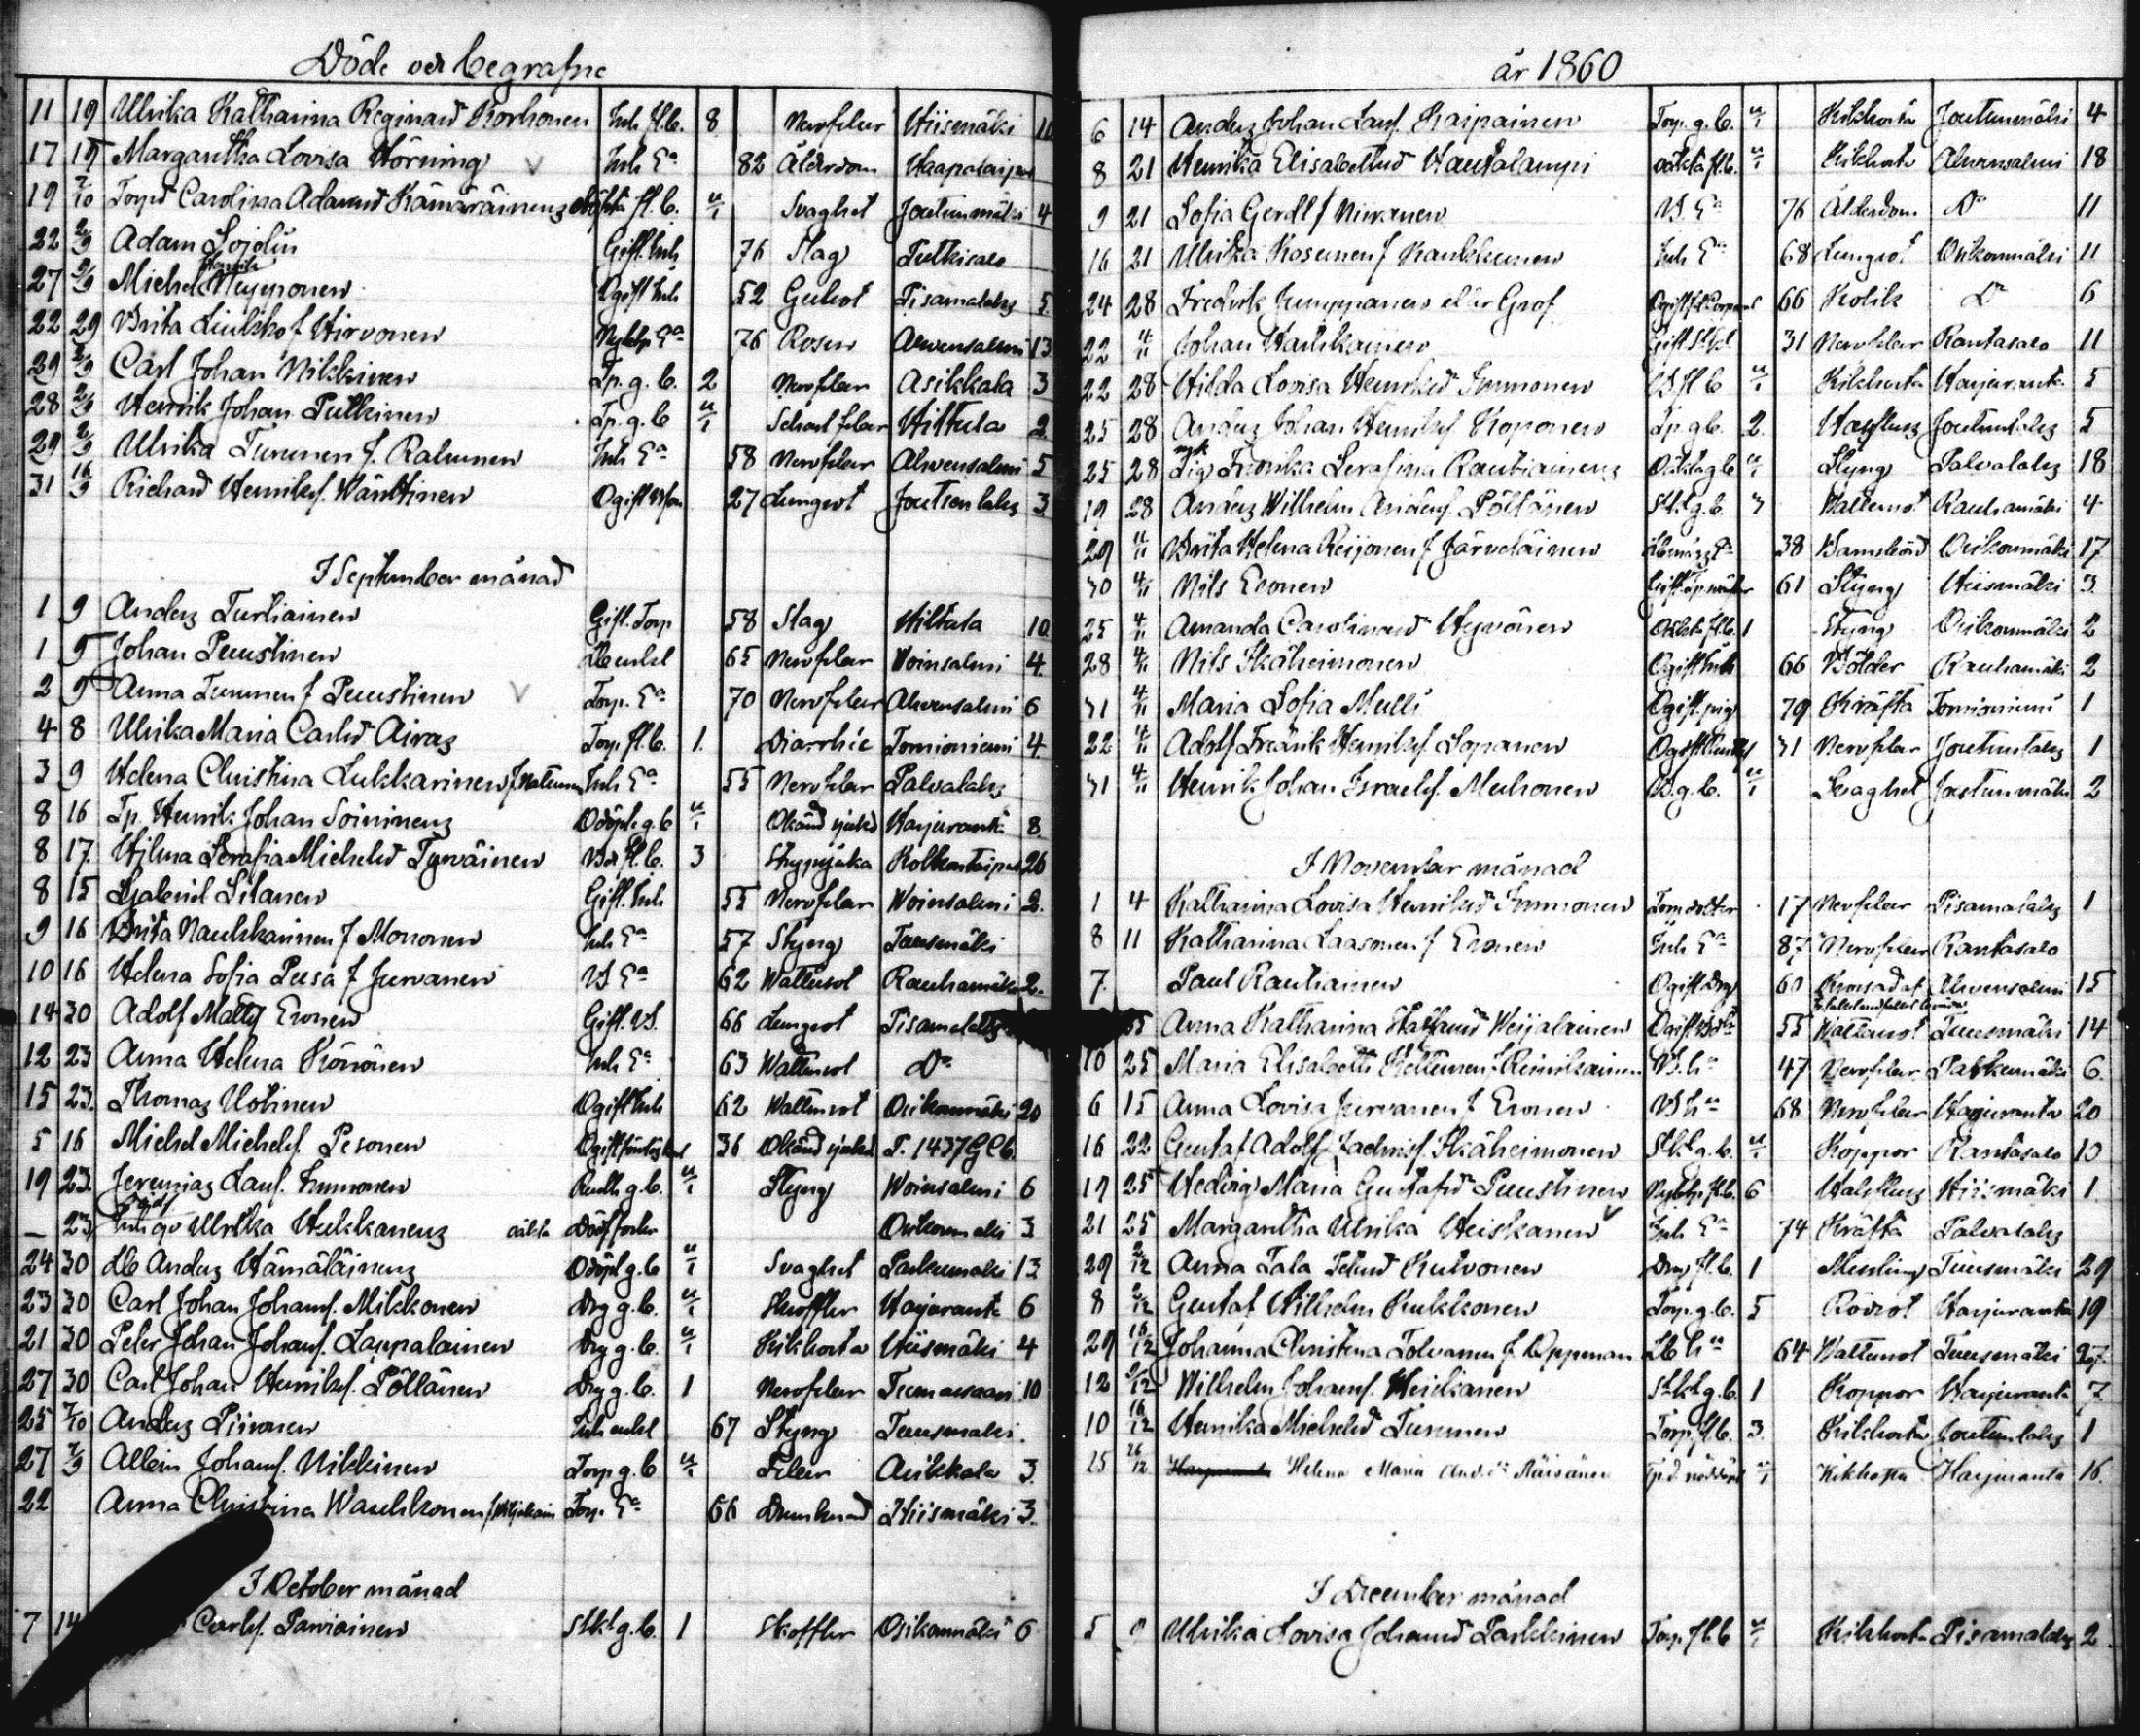 Döde och begrafne
11 19 Ulrika Katharina Reginasd Korhonen Inh fl.b. 8 Nervfeber Hiismäki
17 19 Margaretha Lovisa Hörning Inh Ea 82 Ålderdom
19 7/10 Torpd Carolina Adamsd Kämäräinens fl.b. u/1 Svaghet Joutunmäki 4
22 2/9 Adam Gift Inh 76 Slag Tutkisalo
27 2/9 Michel Henrik Hupponen Ogift Inh 52 Gulsot Pisamalaks 5
22 29 Brita f Hirvonen Nybyg Ea 76 Rosen Ahvensalmi 13
29 2/9 Carl Johan Nikkinen Tp. g. b. 2 Nervfeber Asikkala 3
28 2/9 Henrik Johan Pulkinen Tp. g. b u/1 Scharl feber Hiltula 2
29 2/9 Ulrika Turunen f. Ralunen Inh Ea 58 Nervfeber Ahvensalmi 5
31 16/9 Richard Henriksf. Wänttinen Ogift 27 Lungsot Joutsenlaks 3
I September månad
1 9 Anders Turtiainen Gift. Torp 58 Slag Hiltula 10
1 9 Johan Puustinen Lb enkl 65 Nervfeber Woinsalmi 4
2 9 Anna Turunen f Puustinen Torp. Ea 70 Nervfeber Ahvensalmi 6
4 8 Ulrika Maria Carlsd Airas Torp fl.b. 1. Diarrhée Tornioniemi 4
3 9 Helena Christina Lukkarinen Inh Ea 55 Nervfeber Palvalaks
8 16 Tp. Henrik Johan Soininens Odöpt. g. b u/1 Okänd sjukd Harjuranta 8
8 17 Hilma Serafia Michelsd Tyrväinen fl.b. 3 Strypsjuka Kolkontaipale 26
8 15 Gabriel Silanen Gift. Inh 55 Nervfeber Woinsalmi 2
9 16 Brita Naukkarinen f Mononen Inh Ea 57 Styng Tuusmäki
10 16 Helena Sofia Pusa f Jurvanen Ea 62 Wattusot Rauhamäki 2
14 30 Adolf Matts Eronen Gift. 66 Lungsot Pisamalaks
12 23 Anna Helena Könönen Inh Ea 63 Wattusot Do
15 23 Thomas Uotinen Ogift Inh 62 Wattusot Osikonmäki 20
5 16 Michel Michelsf. Pesonen Ogift 36 Okänd sjukd T. 1437 G C b
19 23 Jeremias Laursf. Immonen g. b. u/1 Styng Woinsalmi 6
— 23 Inh qv Ulrika Hukkanens oäkta Dödf Osikonmäki 3
24 30 Lb Anders Hämäläinens Odöpt g. b u/1 Svaghet Parkumäki 13
23 30 Carl Johan Johansf. Mikkonen Drg g. b. u/1 Harjuranta 6
21 30 Peter Johan Johansf. Lappalainen Drg g. b. u/1 Kikhosta Hiismäki 4
27 30 Carl Johan Henriksf. Pöllänen Drg g. b. 1 Nervfeber 10
25 7/10 Anders Piironen Inh enkl 67 Styng Tuusmäki
27 7/9 Albin Johansf. Nikkinen Torp g. b u/1 Feber Asikkala 3
22 Anna Christina Waukkonen Torp. Ea 66 Hiismäki 3
I October månad
7 14 Carlsf. Parviainen g. b. 1 Osikonmäki 6
år 1860
6 14 Anders Johan Laursf. Kaipainen Torp. g. b. u/1 Kikhosta Joutunmäki 4
8 21 Henrika Elisabethsd Hautalampi oäkta fl.b. u/1 Kikhosta Ahvensalmi 18
9 21 Sofia Gerdt f Nivanen Ea 76 Ålderdom Do 11
16 21 Ulrika Kosunen f Kaukkunen Inh Ea 68 Lungsot Osikonmäki 11
24 28 Fredrik Jumppanen el:r Grof 66 Kolik Do 6
22 4/11 Johan Hartikainen Gift 31 Nervfeber Rantasalo 11
22 28 Hilda Lovisa Henriksd Immonen fl b u/1 Kikhosta Harjuranta 5
25 28 Anders Johan Henriksf Koponen Tp. g b. 2 Joutunlaks 5
25 28 Pig Fredrika Serafina Rautiainens Oäkta g b u/1 Styng Palvalaks 18
19 28 Anders Wilhelm Andersf. Pöllänen g. b. 3 Wattusot Rauhamäki 4
29 4/11 Brita Helena Reijonen f Järveläinen 38 Barnsbörd Osikonmäki 17
30 4/11 Nils Eronen Gift 61 Styng Hiismäki 3
25 4/11 Amanda Carolinasd Hyvönen Oäkta fl.b. 1 Styng Osikonmäki 2
28 4/11 Nils Ikäheimonen Ogift Inh 66 Bölder Rauhamäki 2
31 4/11 Maria Sofia Mulli Ogift. pig 79 Kräfta Tornioniemi 1
22 4/11 Adolf Fredrik Henriksf Sopanen Ogift 31 Nervfeber Joutunlaks 1
31 4/11 Henrik Johan Israelsf. Muhonen g. b. u/1 Svaghet Joutunmäki 2
I November månad
1 4 Katharina Lovisa Henriksd Immonen Torp dotter 17 Nervfeber Pisamalaks 1
8 11 Katharina Laasonen f Eronen Inh Ea 87 Nervfeber Rantasalo
7 Paul Rautiainen Ogift Drg 60 Ahvensalmi 15
Anna Katharina Weijalainen Ogift 55 Wattusot Tuusmäki 14
10 25 Maria Elisabeth Kettunen f Reinikainen 47 Nervfeber Parkumäki 6
6 15 Anna Lovisa Jurvanen f Eronen 68 Nervfeber Harjuranta 20
16 22 Gustaf Adolf Zachrisf. Ikäheimonen g. b. u/1 Koppor Rantasalo 10
19 25 Hedvig Maria Gustafsd Puustinen Nybyg fl.b. 6 Halsfluss Hiismäki 1
21 25 Margaretha Ulrika Heiskanen Inh Ea 74 Kräfta Palvalaks
29 2/12 Anna Petersd Kutvonen Drg fl. b. 1 Messling Tuusmäki 29
8 2/12 Gustaf Wilhelm Kukkonen Torp. g. b. 5 Rödsot Harjuranta 19
29 16/12 Johanna Christina Tolvanen f Oppman Lb 64 Wattusot Tuusmäki 27
12 Wilhelm Johansf. Heiskanen g. b. 1 Koppor Harjuranta 7
10 16/12 Henrika Michelsd Turunen Torp. fl.b. 3 Kikhosta Joutunlaks 1
25 26/12 Helena Maria And.dr Räisänen u/1 Kikhosta Harjuranta 16
I December månad
5 9 Ulrika Lovisa Johansd Parkkinen Torp. fl.b u/1 Kikhosta Pisamalaks 2